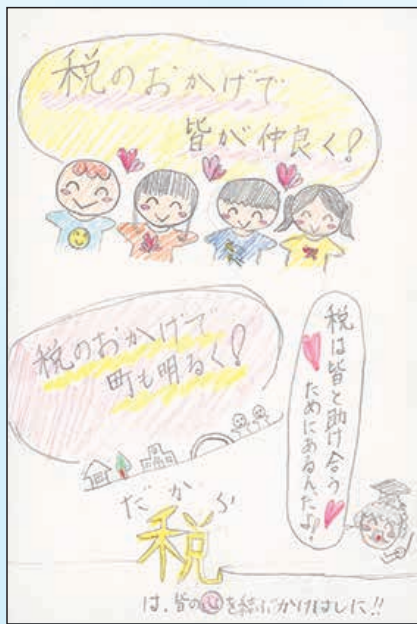 税のおかげで
皆が仲良く!
税のおかげで
町も明るく!
税は皆と助け合う
ためにあるんだよ!
だから
税
は、皆の心を結ぶかけはしに!!